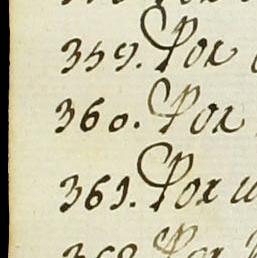 359. Por
360. Por
361. Por u